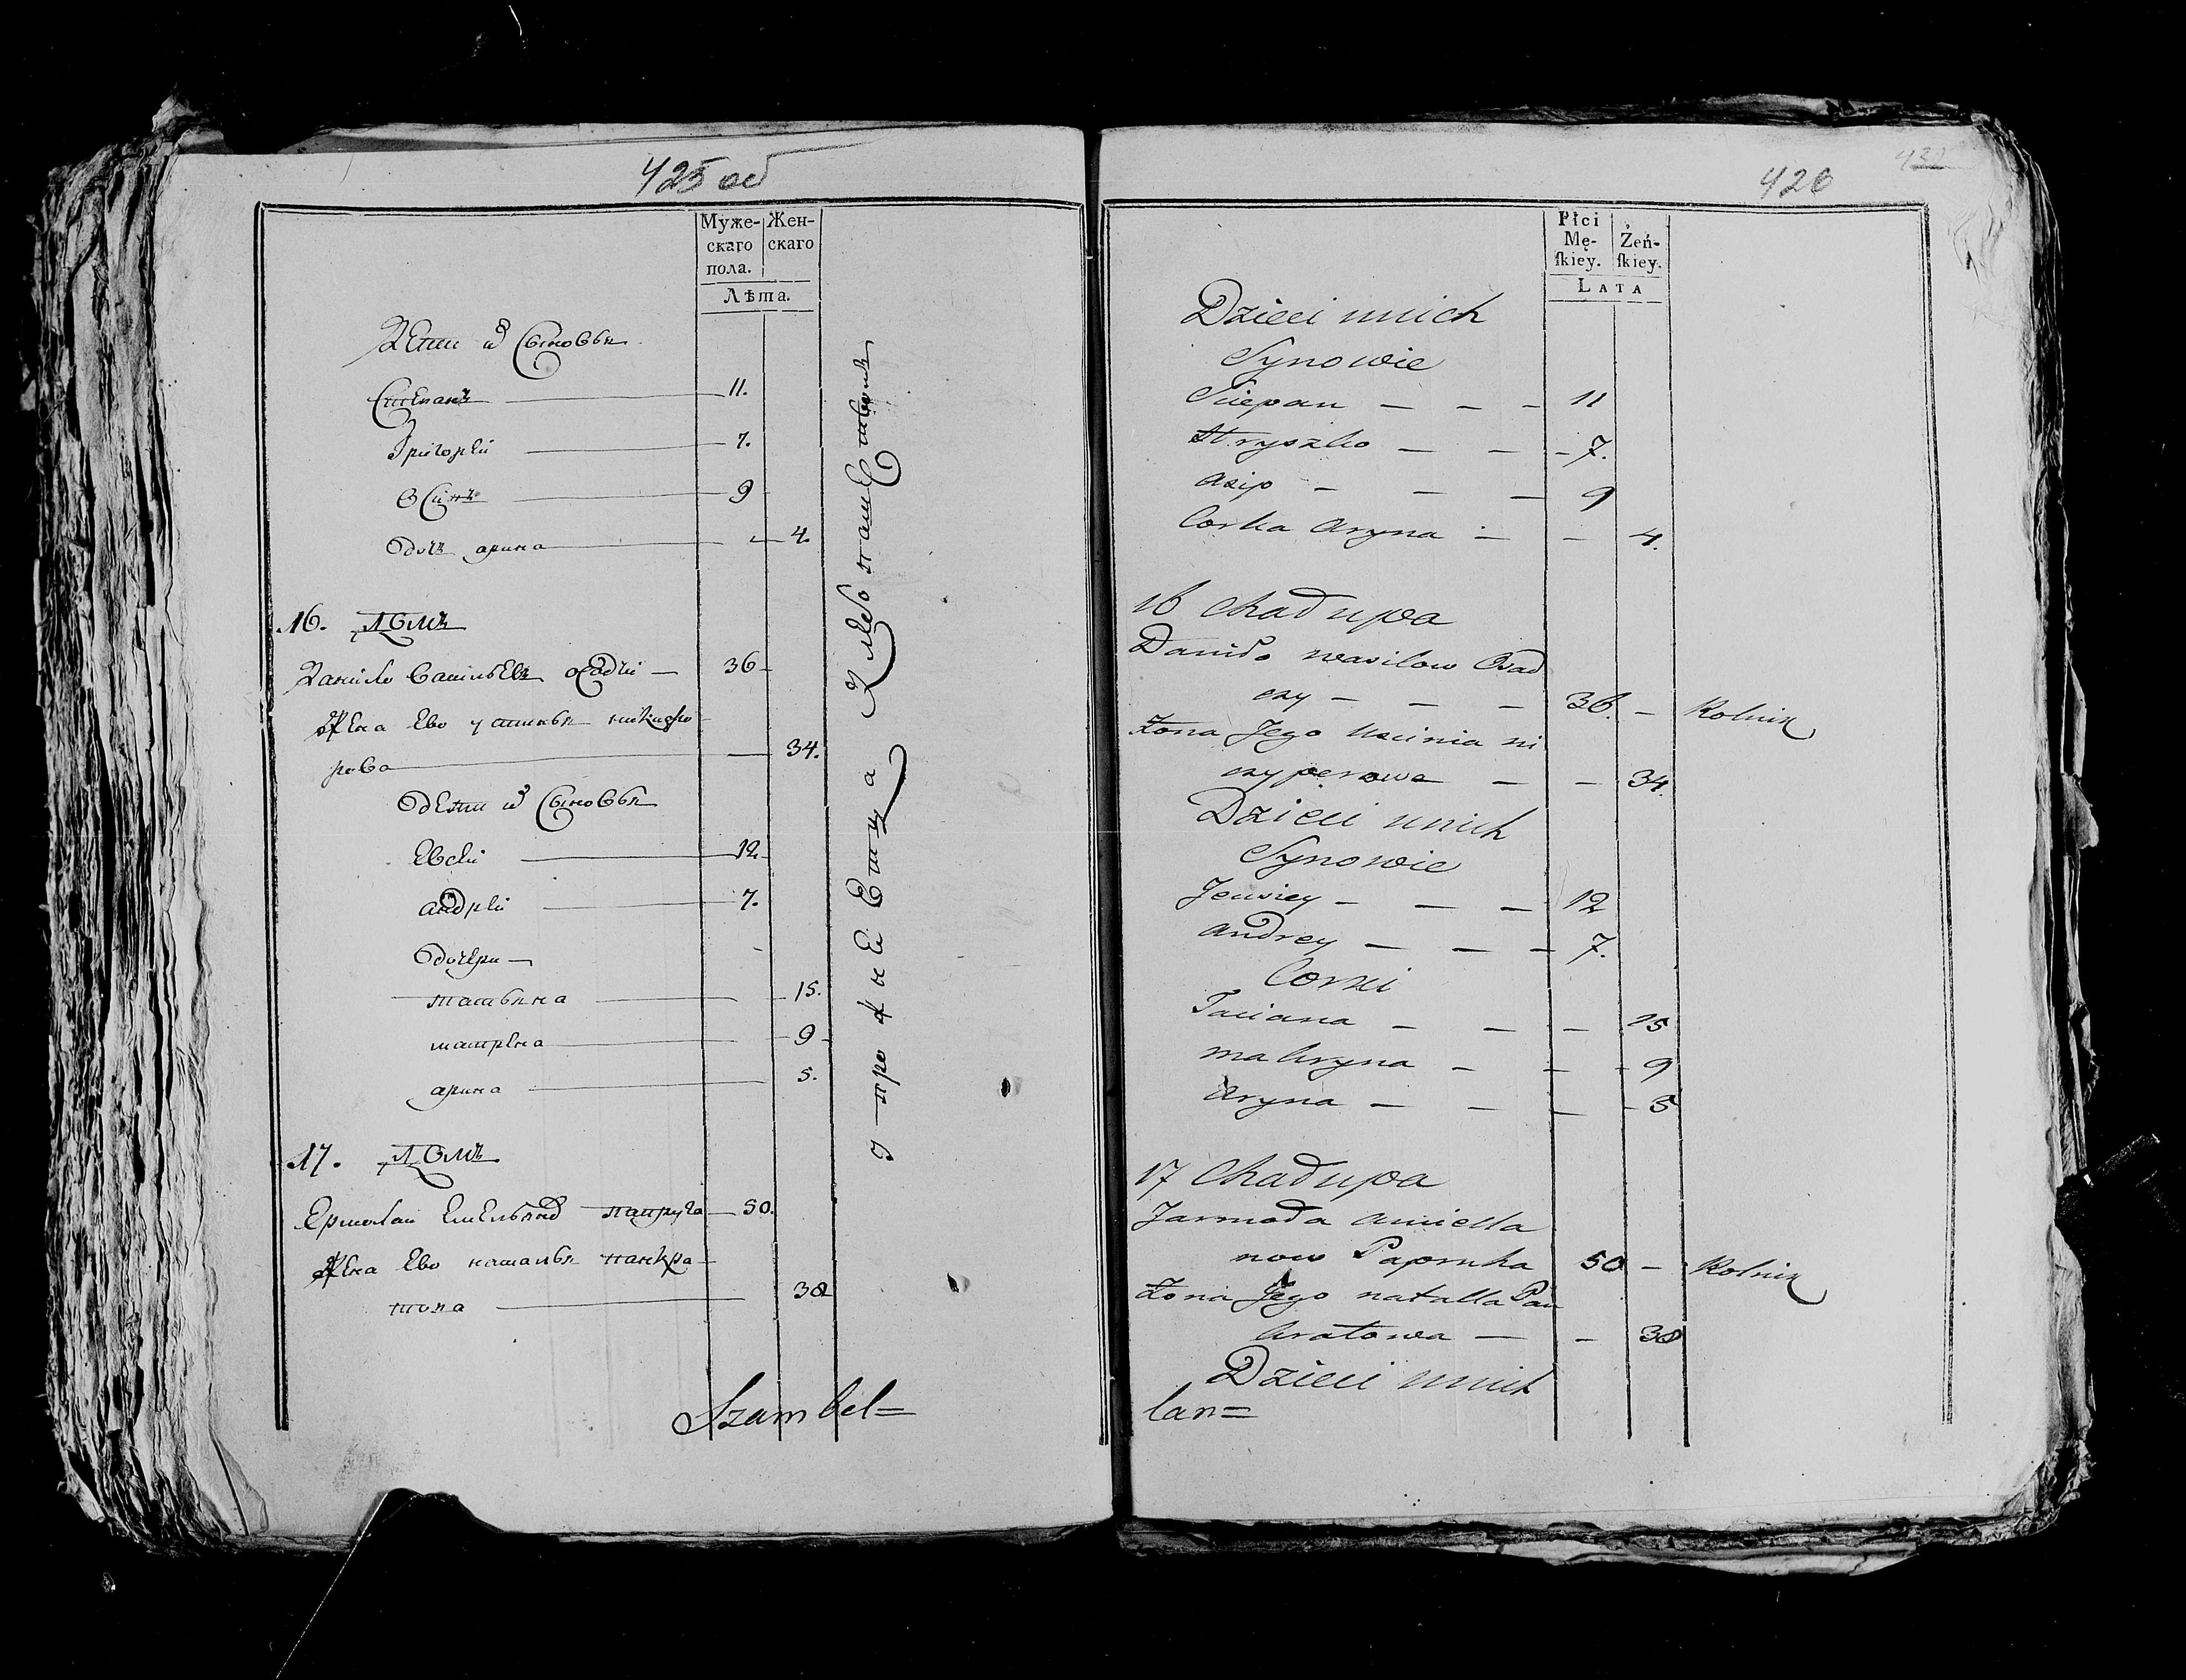 425 об
Муже- Жен-
скаго скаго
пола.
Лѣта.
Дети и Сыновья
Степанъ 11.
Григорей 7.
Осипъ 9
Дочь арина 4.
16. Домъ
Данило васильевъ осадчи 36
Жена Ево устинья никифо
рова 34.
Дети и Сыновья
Евсей 12
андрей 7.
Дочери
татьяна 15.
матрена 9
арина 5.
17. Домъ
Ермолай Емельянов папруга 50.
Жена Ево наталья панкра
това 38
Szambel=
426
Płci
Mę- Żeń-
skiey. skiey.
LATA
Dzieci unich
Synowie
Sciepan 11
Hryszko 7.
Asip 9
Corka Aryna 4.
16 Chadupa
Daniło wasilow Osad
czy 36. Rolnik
Żona Jego Uscinia ni
czyperowa 34.
Dzieci unich
Synowie
Jeusiey 12
Andrey 7.
Corki
Taciana 15
makryna 9
Aryna 5
17 Chadupa
Jarmoła Amiella
now Papruha 50 Rolnik
Żona Jego natalla Pan
kratowa 38
Dzieci unich
lan=